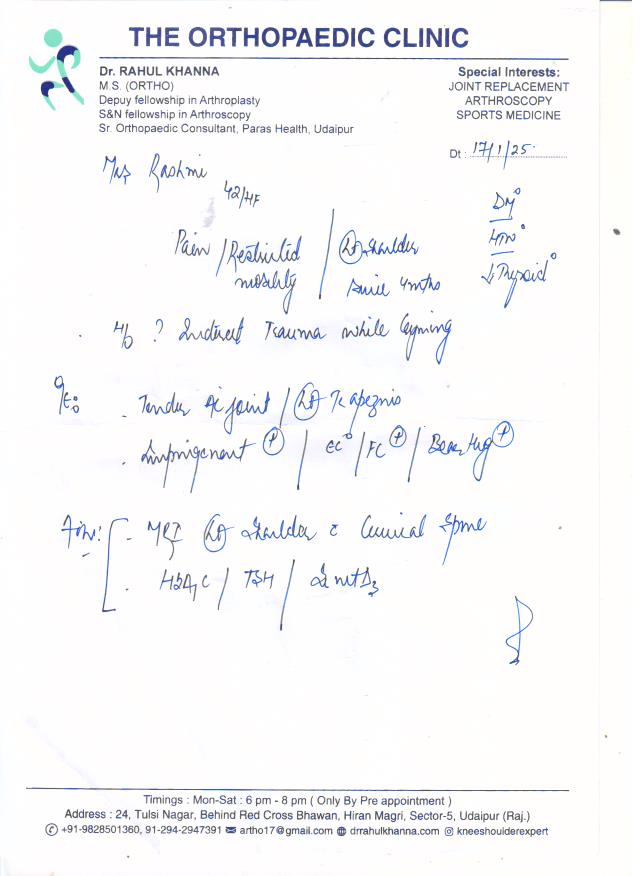 THE ORTHOPAEDIC CLINIC
Dr. RAHUL KHANNA
M.S. (ORTHO)
Depuy fellowship in Arthroplasty
S&N fellowship in Arthroscopy
Sr. Orthopaedic Consultant, Paras Health, Udaipur
Special Interests:
JOINT REPLACEMENT
ARTHROSCOPY
SPORTS MEDICINE
Dt : 17/1/25
Mrs Rashmi
42/F
DM°
HTN°
Thyroid°
Pain / Restricted mobility / Lt Shoulder since 4mths
H/o ? Indirect Trauma while Gyming
O/E:
- Tender AC joint / Lt Trapezius
- Impingement (+) / EC° / FC (+) / Bear Hug (+)
Adv:
- MRI Lt Shoulder c Cervical Spine
- HbA1C / TSH / VitD3
Timings : Mon-Sat : 6 pm - 8 pm ( Only By Pre appointment )
Address : 24, Tulsi Nagar, Behind Red Cross Bhawan, Hiran Magri, Sector-5, Udaipur (Raj.)
+91-9828501360, 91-294-2947391 artho17@gmail.com drrahulkhanna.com kneeshoulderexpert